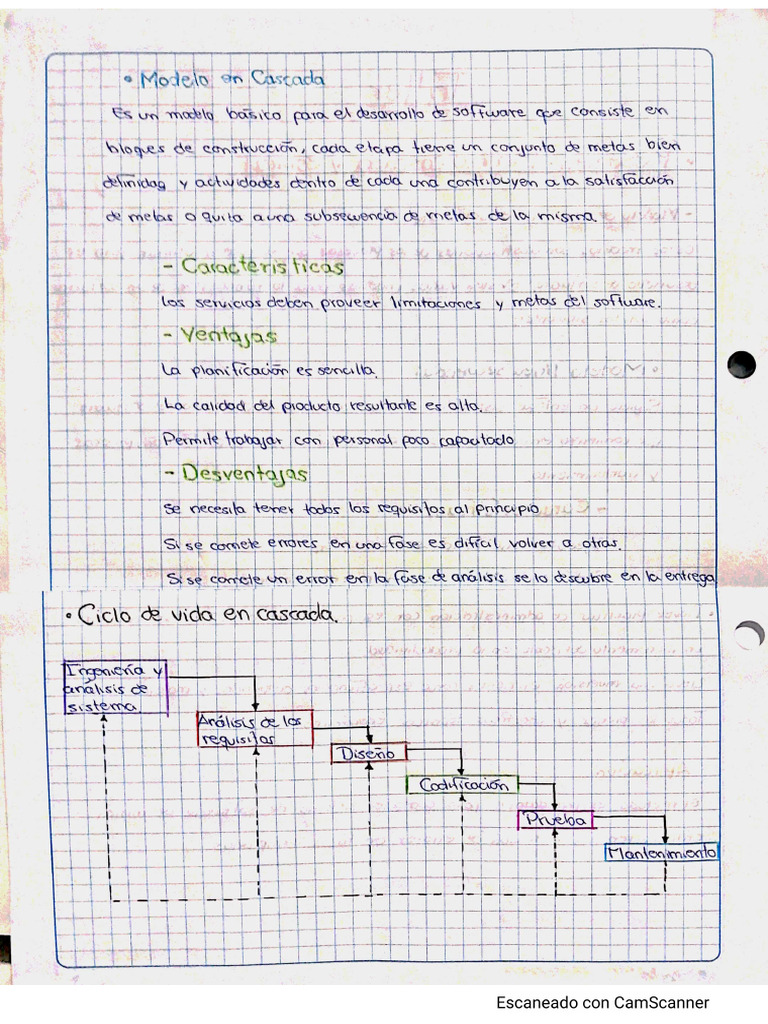 • Modelo en Cascada
Es un modelo básico para el desarrollo de software que consiste en
bloques de construcción, cada etapa tiene un conjunto de metas bien
definidas y actividades dentro de cada una contribuyen a la satisfacción
de metas o quita a una subsecuencia de metas de la misma.
- Características
Los servicios deben proveer limitaciones y metas del software.
- Ventajas
La planificación es sencilla.
La calidad del producto resultante es alta.
Permite trabajar con personal poco capacitado
- Desventajas
Se necesita tener todos los requisitos al principio
Si se comete errores en una fase es difícil volver a otras.
Si se comete un error en la fase de análisis se lo descubre en la entrega
• Ciclo de vida en cascada.
Ingeniería y
análisis de
sistema
Análisis de los
requisitos
Diseño
Codificación
Prueba
Mantenimiento
Escaneado con CamScanner